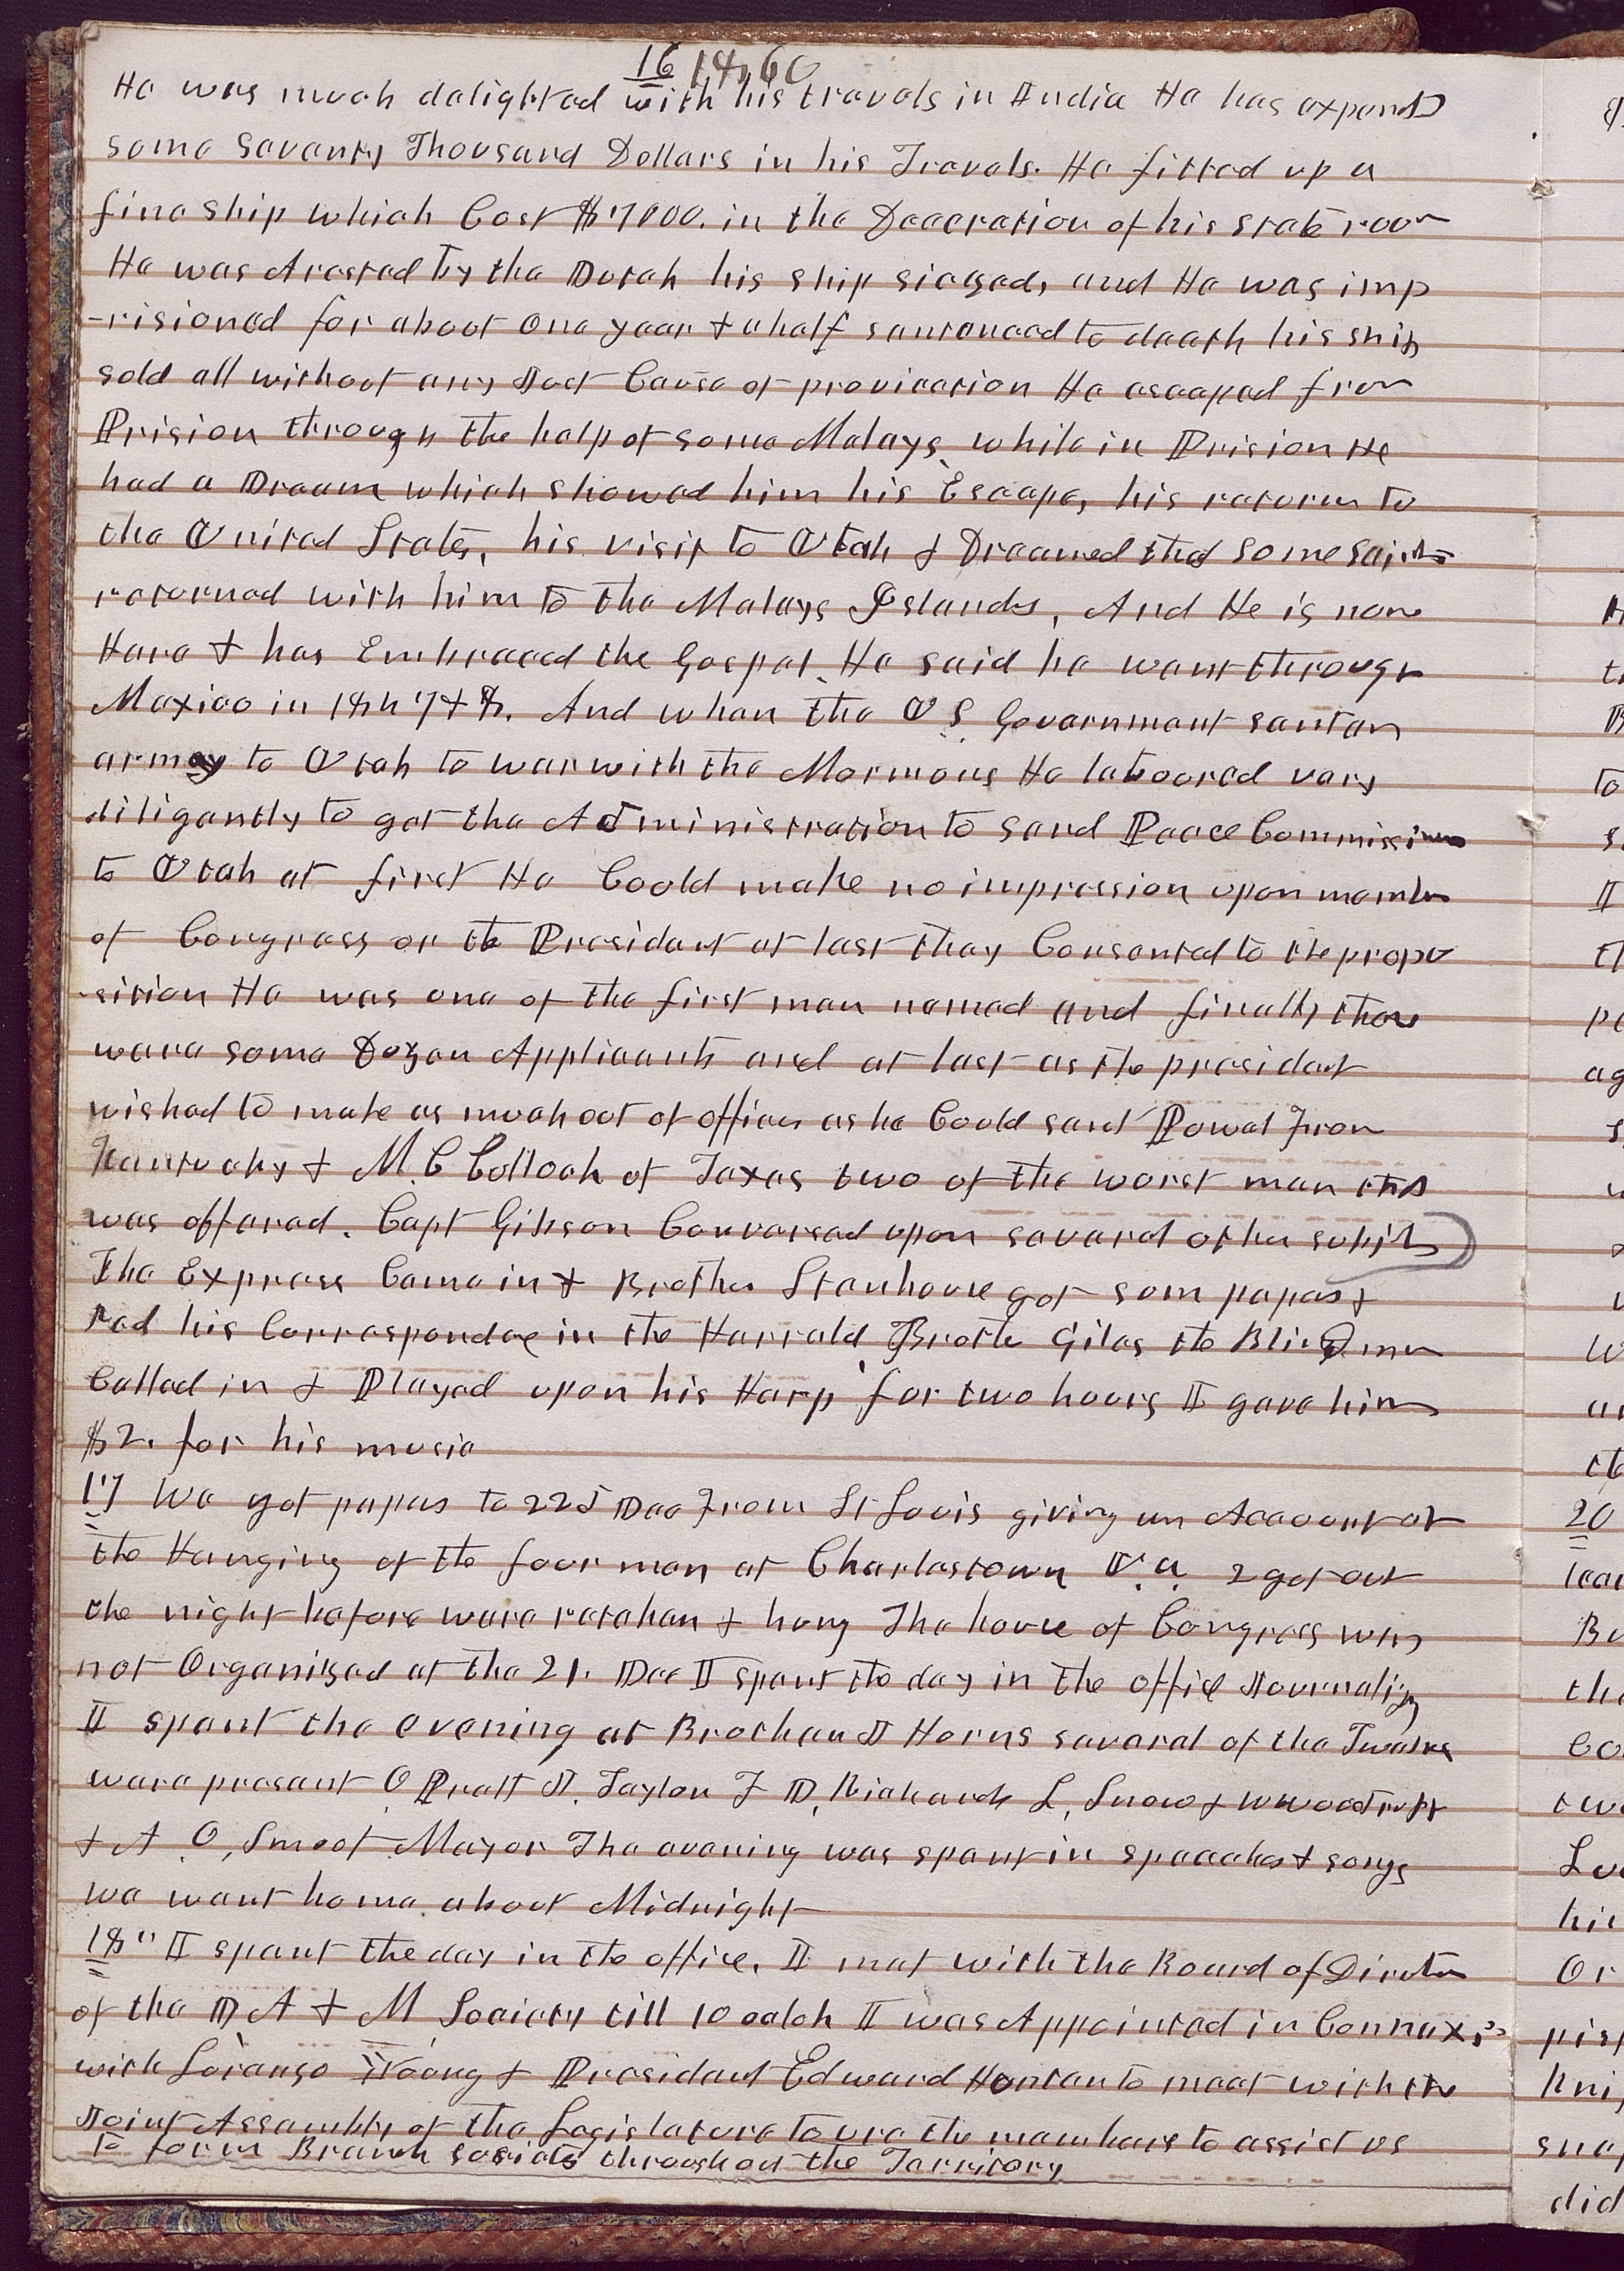 16 18,60
He was much delighted with his travels in India He has expend
some Seventy Thousand Dollars in his Travels. He fitted up a
fine ship which Cost $7000. in the Decoration of his state room
He was Arested by the Dutch his ship siezed, and He was imp
-risioned for about one year & a half sentenced to death his ship
sold all without any Just Cause or provication He escaped from
Prision through the help of some Malays while in Prision He
had a Dream which showed him his Escape, his return to
the United States, his visit to Utah & Dreamed that some saints
returned with him to the Malays Islands, And He is now
Here & has Embraced the Gospel. He said he went through
Mexico in 1847 & 8. And when the U S. Government sent an
army to Utah to war with the Mormons He laboured very
diligently to get the Administration to send Peace Commissions
to Utah at first He Could make no impression upon members
of Congress or the President at last they Consented to the propo
-sition He was one of the first men named and finally there
were some Dozen Applicants and at last as the president
wished to make as much out of offices as he Could sent Powel From
Kentucky & M. C Colloch of Texas two of the worst men that
was offered. Capt Gibson Conversed upon several other subjts
The Express Came in & Brother Stenhouse got som papers &
red his Correspondce in the Harrald Brothe Giles the Blind man
Called in & Played upon his Harp for two hours I gave him
$2. for his music
17 We got papers to 22d Dec From St Louis giving an Account of
the Hanging of the four men at Charlestown V. a. 2 got out
the night before were retaken & hung The house of Congress was
not Organized at the 21. Dec I spent the day in the office Journalizg
I spent the evening at Brother J Horns several of the Twelve
were present O Pratt J. Taylor F D. Richards L. Snow & W Woodruff
& A. O, Smoot Mayor The evening was spent in speeches & songs
we went home about Midnight
18" I spent the day in the office. I met with the Board of Directors
of the D A & M Society till 10 oclok I was Appointed in Connexion
with Loranzo Young & President Edward Hunter to meet with the
Joint Assembly of the Legislature to urge the members to assist us
To form Branch societs throughout the Territory